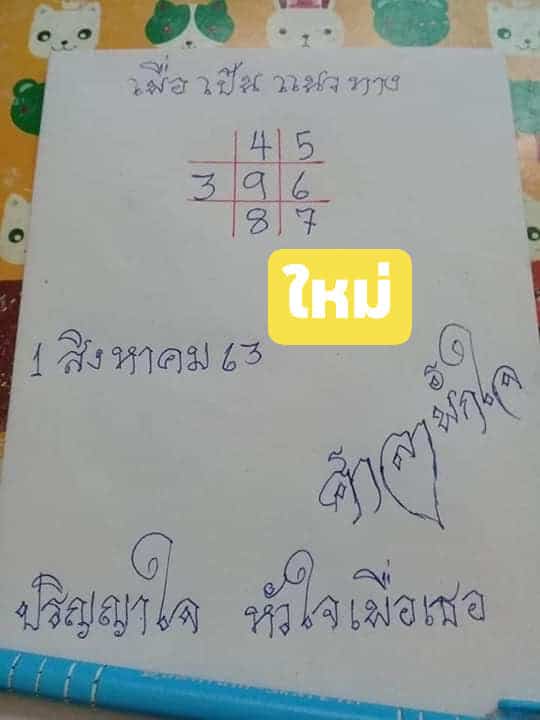 เพื่อ เป็น แนวทาง
4 5
3 9 6
8 7
ใหม่
1 สิงหาคม 63
ศาลาพักใจ
ปริญญาใจ หัวใจเพื่อเธอ